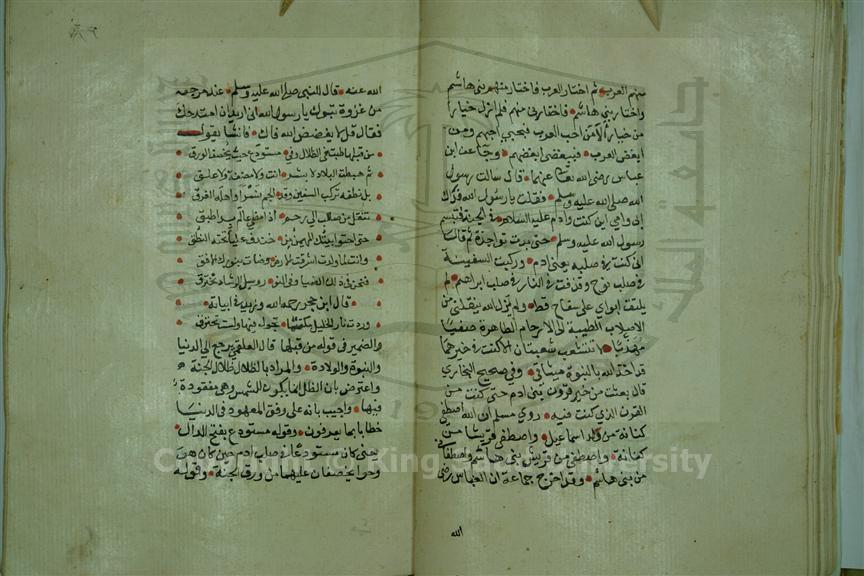 منهم العرب ثم اختار العرب فاختار منهم بني هاشم
واختار بني هاشم فاختارني منهم فلم ازل خيارا
من خيار الا من احب العرب فبحبي احبهم ومن
ابغض العرب فببغضي ابغضهم وجاء عن ابن
عباس رضي الله تعالى عنهما قال سالت رسول
الله صلى الله عليه وسلم فقلت يا رسول الله فداك
ابي وامي اين كنت وادم عليه السلام في الجنة فتبسم
رسول الله عليه وسلم حتى بدت نواجذه ثم قال
اني كنت في صلبه يعني ادم وركبت السفينة
في صلب نوح وقذفت في النار في صلب ابراهيم لم
يلتقت ابواي على سفاح قط ولم يزل الله ينقلني من
الاصلاب الطيبة الى الارحام الطاهرة صفيا
مهذبا لا تنشعب شعبتان الا كنت في خيرهما
قد اخذ الله بالنبوة ميثاقي وفي صحيح البخاري
قال بعثت من خير قرون بني ادم حتى كنت من
القرن الذي كنت فيه روي مسلم ان الله اصطفى
كنانة من ولد اسماعيل واصطفى قريشا من
كنانة واصطفى من قريش بني هاشم واصطفاني
من بني هاشم وقد اخرج جماعة ان العباس رضي
الله
الله عنه قال للنبي صلى الله عليه وسلم عند مرجعه
من غزوة تبوك يا رسول الله اني اريد ان امتدحك
فقال قل لا يفضض الله فاك فانشا يقول
من قبلها طبت في الظلال وفي مستودع حيث يخصف الورق
ثم هبطت البلاد لا بشر انت ولا مضغة ولا علق
بل نطفة تركب السفين وقد الجم نسرا واهله الغرق
تنتقل من صالب الى رحم اذا مضى عالم بدا طبق
حتى احتوى بيتك المهيمن من خندف علياء تحته النطق
وانت لما ولدت اشرقت الارض وضاءت بنورك الافق
فنحن في ذلك الضياء وفي النور وسبل الرشاد نخترق
قال ابن حجر رحمه الله ويزيد في ابياته
وردت نار الخليل مكتتما تجول فيها ولست تحترق
والضمير في قوله من قبلها قال العلقمي يرجع الى الدنيا
والنبوة والولادة والمراد بالظلال ظلال الجنة
واعترض بان الظل انما يكون للشمس وهي مفقودة
فيها واجيب بانه على وفق المعهود في الدنيا
خطابا بما يعرفون وقوله مستودع بفتح الدال
يعني كان مستودعا في صلب ادم حين كان هو
وحوا يخصفان عليهما من ورق الجنة وقوله
Copyright © King Saud University
جامعة الملك سعود